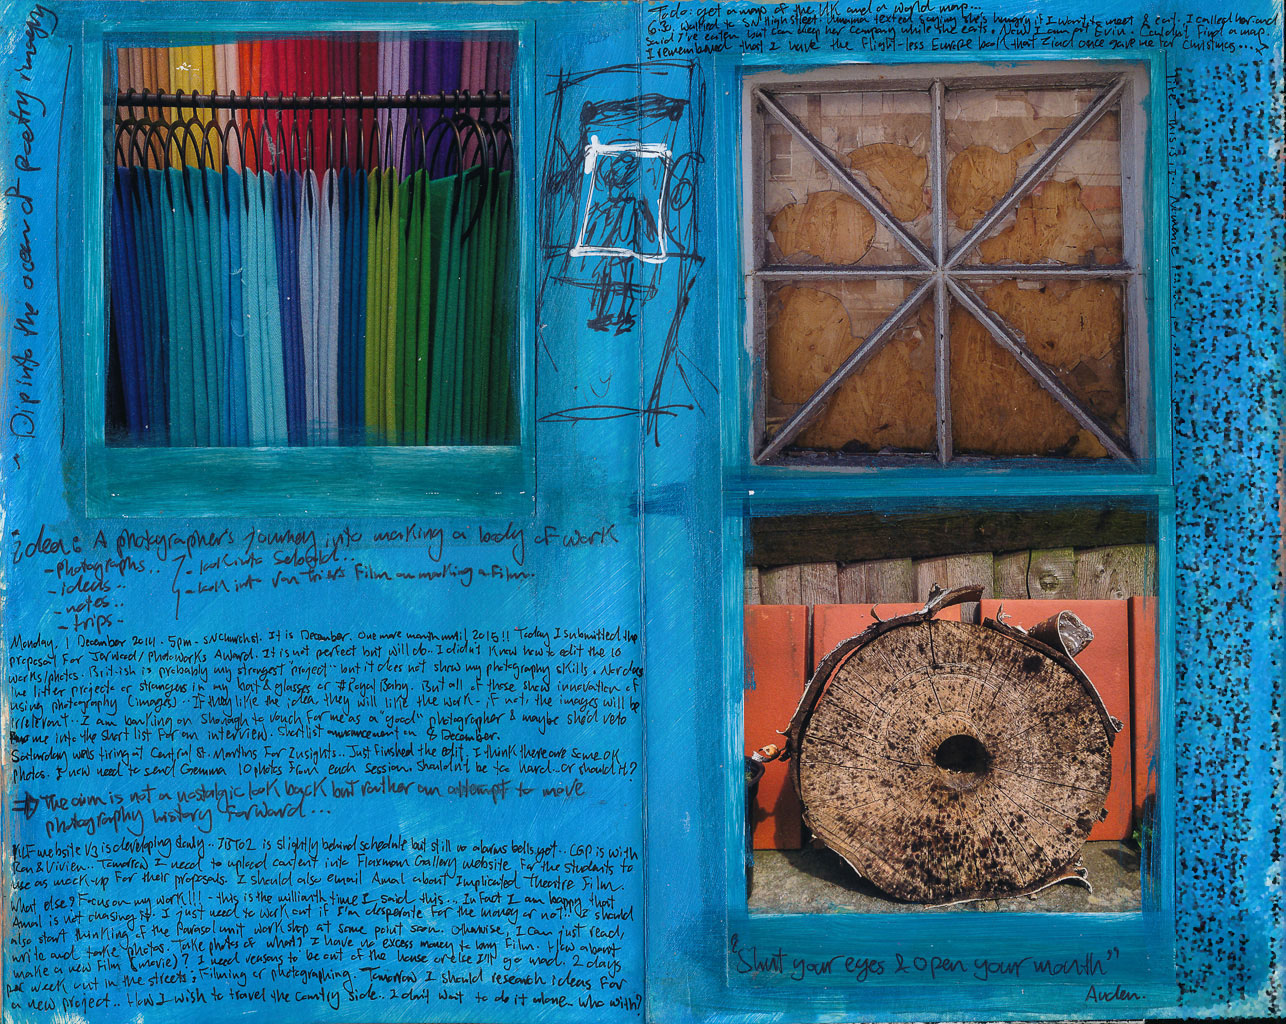 ~ Dip into the ocean of poetry imagery
Idea: A photographer's journey into making a body of work
- photographs..
- ideas..
- notes..
- trips..
- look into
- look into Von Trier's Film on making a Film.
Monday, 1 December 2014. 5pm. SN Church st. It is December. One more month until 2015!! Today I submitted the
proposal For Jerwood/Photoworks Award. It is not perfect but will do.. I didn't know how to edit the 10
works/photos. British is probably my strongest "project".. but it does not show my photography skills. Nor does
the litter project or strangers in my hat & glasses or #RoyalBaby. But all of those show innovation of
using photography (images).. If they like the idea, they will like the work.. if not, the images will be
irrelevant.. I am banking on to vouch For me as a "good" photographer & maybe she'd veto
me into the short list For an interview. Shortlist announcement on 8 December.
Saturday was tiring at Central St. Martins For Insights.. Just finished the edit, I think there are some OK
photos. I now need to send Gemma 10 photos From each session. Shouldn't be too hard.. or should it?
The aim is not a nostalgic look back but rather an attempt to move
photography history Forward...
website V3 is developing daily.. is slightly behind schedule but still no alarms bells yet.. is with
& Vivien. Tomorrow I need to upload content into Flaxman Gallery website For the students to
use as mock-up For their proposals. I should also email Amal about Implicated Theatre Film.
What else? Focus on my work!!! - this is the millionth time I said this... In Fact I am happy that
Amal is not chasing it. I just need to work out if I'm desperate For the money or not!! I should
also start thinking of the Parasol unit workshop at some point soon. Otherwise, I can just read,
write and take photos. Take photos of what? I have no excess money to buy Film. How about
make a new Film (movie)? I need reasons to be out of the house or else I'll go mad. 2 days
per week out in the streets; Filming or photographing. Tomorrow I should research ideas For
a new project.. How I wish to travel the country side.. I don't want to do it alone.. who with?
Todo: get a map of the UK and a world map...
6.30. Walked to SN High street. texted saying she's hungry if I want to meet & eat. I called her and
said I've eaten but can keep her company while she eats. Now I am at Evin. Couldn't find a map.
I remembered that I have the Flight-less Europe book that Ziad once gave me For Christmas....
"Shut your eyes & open your mouth"
Auden.